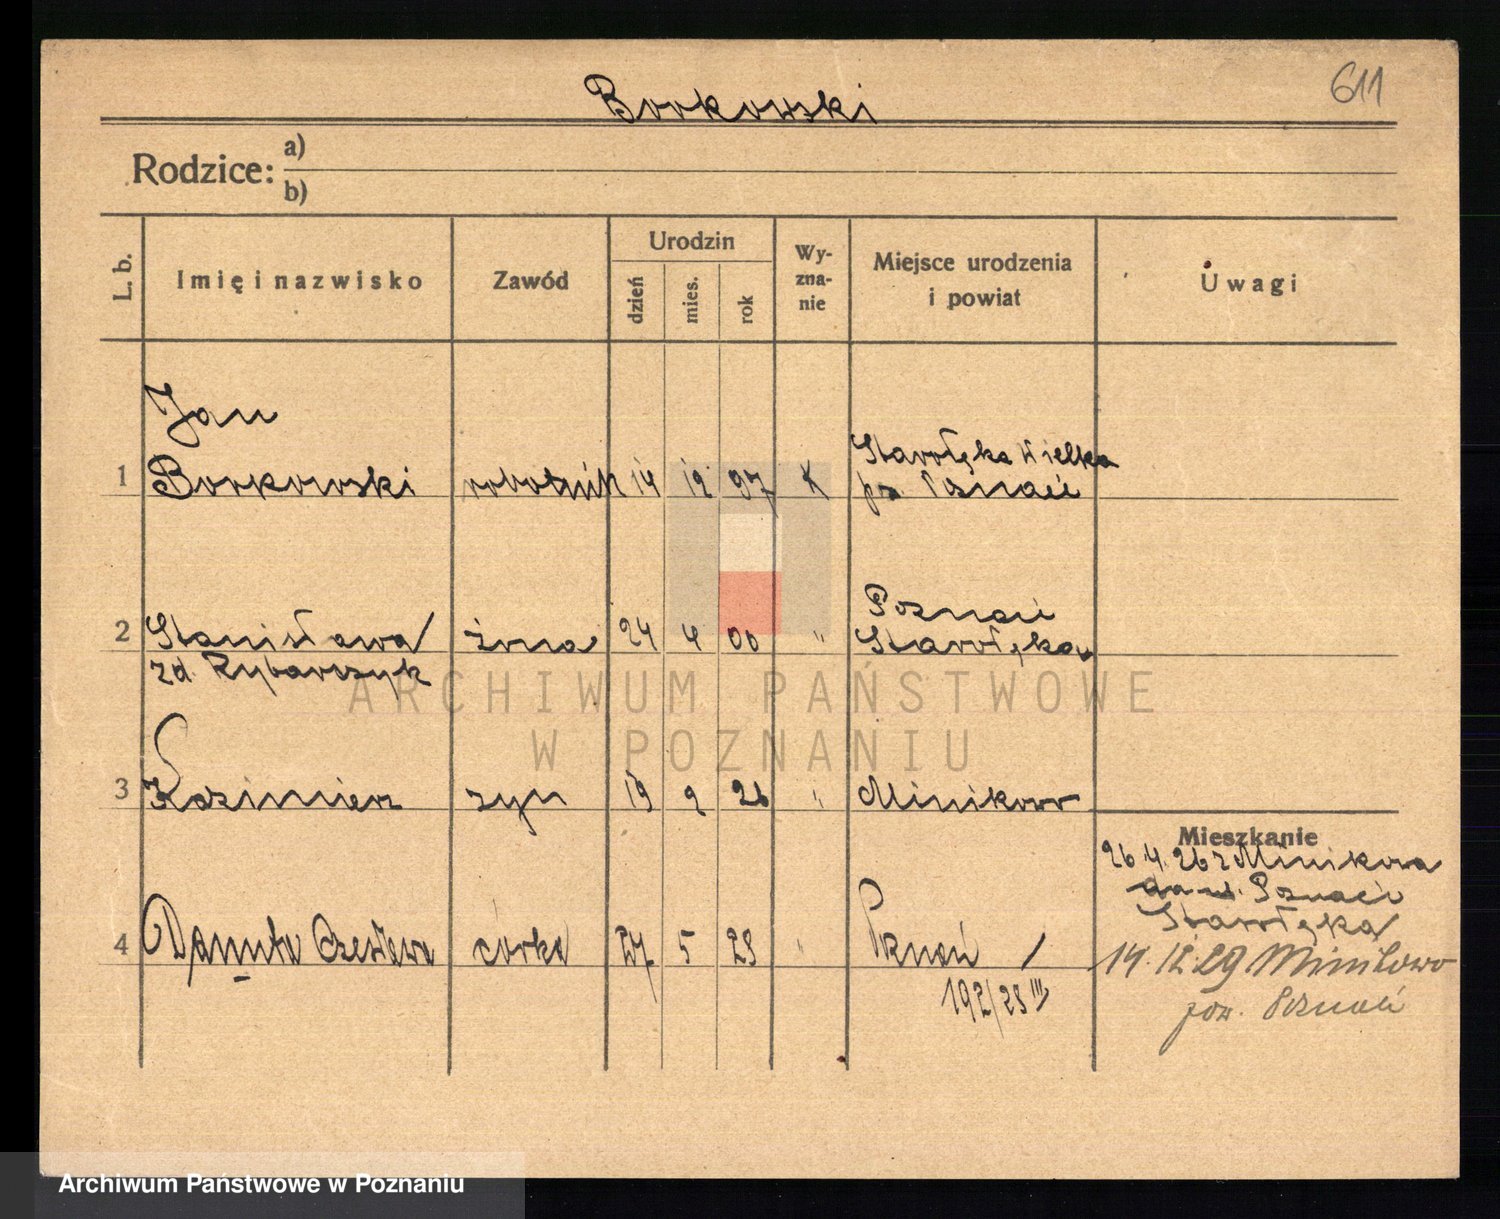 611
Borkowski
Rodzice: a)
b)
L. b.
Imię i nazwisko
Zawód
Urodzin
dzień
mies.
rok
Wy-
zna-
nie
Miejsce urodzenia
i powiat
Uwagi
Jan
1 Borkowski robotnik 14 12 97 K
Starołęka Wielka
pow. Poznań
2 Stanisława żona 24 4 00 "
zd. Rybarczyk
Poznań
Starołęka
3 Kazimierz syn 19 2 26 " Minikowo
Mieszkanie
26.4.26 z Minikowa
Poznań
Starołęka
4 Danuta Czesława córka 27 5 28 " Poznań /
192/28 III
14.12.29 Minikowo
pow. Poznań
ARCHIWUM PAŃSTWOWE
W POZNANIU
Archiwum Państwowe w Poznaniu